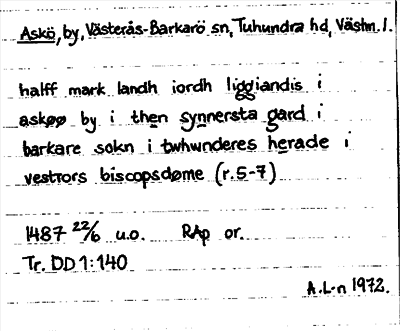 Askö, by, Västerås-Barkarö sn, Tuhundra hd, Västm. l.
halff mark landh iordh liggiandis i
askøø by i then synnersta gard i
barkare sokn i twhwnderes herade i
vestrors biscopsdøme (r.5-7)
1487 22/6 u.o. RAp or.
Tr. DD 1:140
A.L-n 1972.